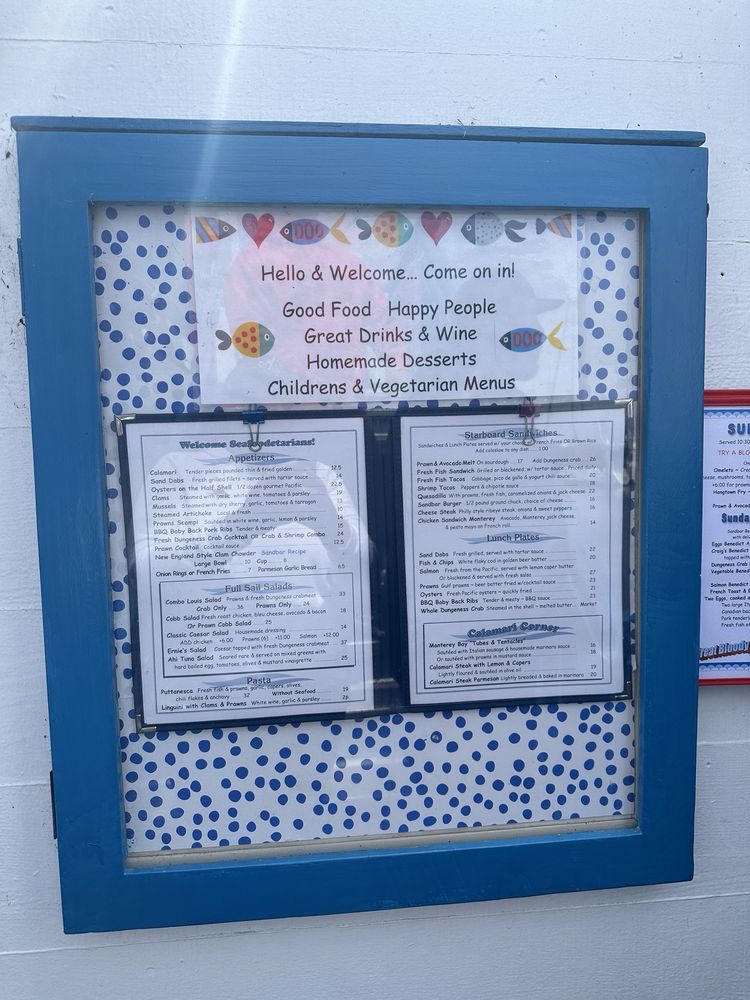 Hello & Welcome... Come on in!
Good Food Happy People
Great Drinks & Wine
Homemade Desserts
Childrens & Vegetarian Menus
Welcome Seafoodetarians!
Appetizers
Calamari Tender pieces pounded thin & fried golden 12.5
Sand Dabs Fresh grilled filets ~ served with tartar sauce 14
Oysters on the Half Shell 1/2 dozen gourmet Pacific 22.5
Clams Steamed with garlic, white wine, tomatoes & parsley
Mussels Steamed with dry sherry, garlic, tomatoes & tarragon
Steamed Artichoke Local & fresh
Prawns Scampi Sautéed in white wine, garlic, lemon & parsley 14
BBQ Baby Back Pork Ribs Tender & meaty 15
Fresh Dungeness Crab Cocktail OR Crab & Shrimp Combo 24
Prawn Cocktail Cocktail sauce 12.5
New England Style Clam Chowder Sandbar Recipe
Large Bowl 10 Cup 8
Onion Rings or French Fries 7 Parmesan Garlic Bread 6.5
Full Sail Salads
Combo Louis Salad Prawns & fresh Dungeness crabmeat 33
Crab Only 36 Prawns Only 24
Cobb Salad Fresh roast chicken, bleu cheese, avocado & bacon 18
Or Prawn Cobb Salad 25
Classic Caesar Salad Housemade dressing 14
ADD chicken +6.00 Prawns (6) +11.00 Salmon +12.00
Ernie's Salad Caesar topped with fresh Dungeness crabmeat 37
Ahi Tuna Salad Seared rare & served on mixed greens with
hard boiled egg, tomatoes, olives & mustard vinaigrette 25
Pasta
Puttanesca Fresh fish & prawns, garlic, capers, olives,
chili flakes & anchovy 32 Without Seafood 19
Linguini with Clams & Prawns White wine, garlic & parsley 26
Starboard Sandwiches
Sandwiches & Lunch Plates served w/ your choice French Fries OR Brown Rice
Add coleslaw to any dish 1.00
Prawn & Avocado Melt On sourdough 17 Add Dungeness Crab 26
Fresh Fish Sandwich Grilled or blackened, w/ tartar sauce Priced daily
Fresh Fish Tacos Cabbage, pico de gallo & yogurt chili sauce 20
Shrimp Tacos Peppers & chipotle sauce 18
Quesadilla With prawns, fresh fish, caramelized onions & jack cheese 22
Sandbar Burger 1/2 pound ground chuck, choice of cheese
Cheese Steak Philly style ribeye steak, onions & sweet peppers 16
Chicken Sandwich Monterey Avocado, Monterey jack cheese,
& pesto mayo on French roll 14
Lunch Plates
Sand Dabs Fresh grilled, served with tartar sauce 22
Fish & Chips White flaky cod in golden beer batter 20
Salmon Fresh from the Pacific, served with lemon caper butter 27
Or blackened & served with fresh salsa
Prawns Gulf prawns ~ beer batter fried w/cocktail sauce 23
Oysters Fresh Pacific oysters ~ quickly fried 21
BBQ Baby Back Ribs Tender & meaty ~ BBQ sauce
Whole Dungeness Crab Steamed in the shell ~ melted butter Market
Calamari Corner
Monterey Bay "Tubes & Tentacles"
Sautéed with Italian sausage & housemade marinara sauce 16
Or sautéed with prawns in mustard sauce 18
Calamari Steak with Lemon & Capers
Lightly floured & sautéed in olive oil 19
Calamari Steak Parmesan Lightly breaded & baked in marinara 20
Served 10:30
TRY A BLO
Omelets ~
cheese, mushrooms, to
+6.00 for prawns
Hangtown Fry
Prawn & Avocad
Sunda
Eggs Benedict
Craig's Benedict
Dungeness Crab
Vegetable Bene
Salmon Benedict
French Toast &
Two Eggs, cooked